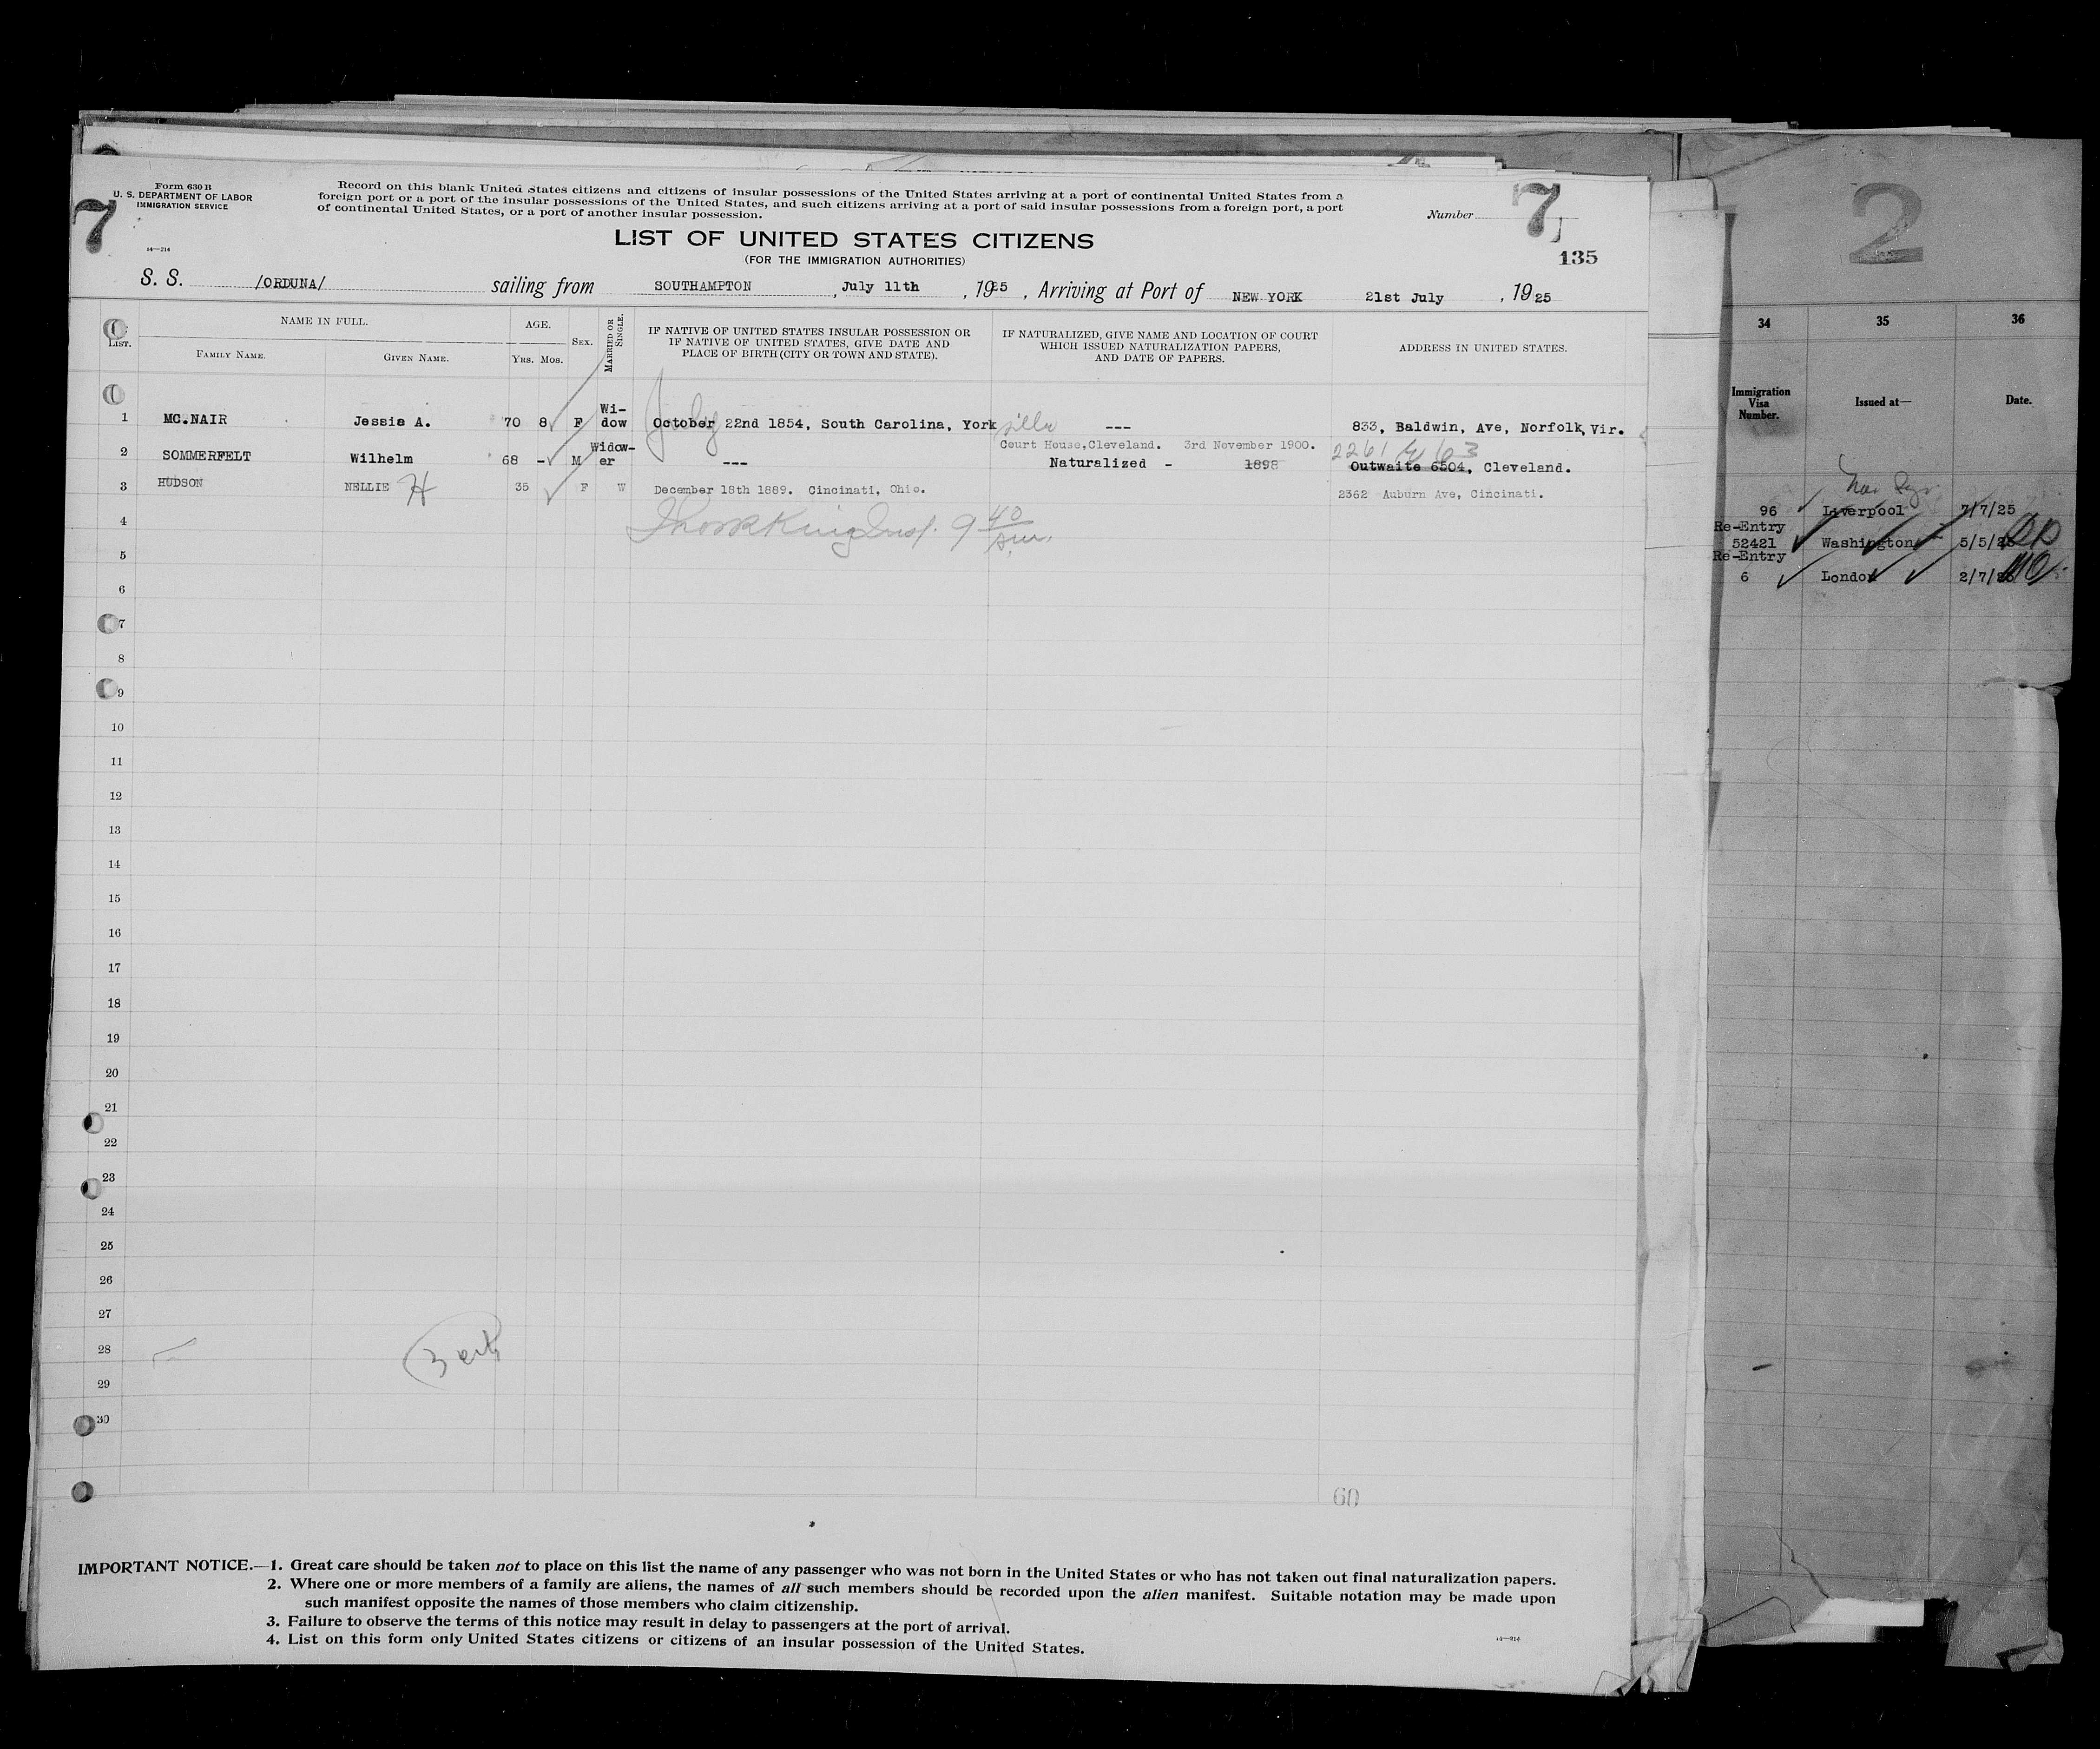 Form 630 B
U. S. DEPARTMENT OF LABOR
IMMIGRATION SERVICE
14—214
7
Record on this blank United States citizens and citizens of insular possessions of the United States arriving at a port of continental United States from a
foreign port or a port of the insular possessions of the United States, and such citizens arriving at a port of said insular possessions from a foreign port, a port
of continental United States, or a port of another insular possession.
Number 7
LIST OF UNITED STATES CITIZENS
(FOR THE IMMIGRATION AUTHORITIES)
135
S. S. /ORDUNA/ sailing from SOUTHAMPTON, July 11th, 1925, Arriving at Port of NEW YORK 21st July, 1925
LIST.
NAME IN FULL.
FAMILY NAME. GIVEN NAME.
AGE.
YRS. MOS.
SEX.
MARRIED OR SINGLE.
IF NATIVE OF UNITED STATES INSULAR POSSESSION OR
IF NATIVE OF UNITED STATES, GIVE DATE AND
PLACE OF BIRTH (CITY OR TOWN AND STATE).
IF NATURALIZED, GIVE NAME AND LOCATION OF COURT
WHICH ISSUED NATURALIZATION PAPERS,
AND DATE OF PAPERS.
ADDRESS IN UNITED STATES.
1 MC.NAIR Jessie A. 70 8 F Wi-dow October July 22nd 1854, South Carolina, York ville --- 833, Baldwin, Ave, Norfolk, Vir.
Court House, Cleveland. 3rd November 1900. 2261 63
2 SOMMERFELT Wilhelm 68 - M Widow-er --- Naturalized - 1898 Outwaite 6504, Cleveland.
3 HUDSON NELLIE H 35 F W December 18th 1889. Cincinati, Ohio. 2362 Auburn Ave, Cincinati.
4
5
6
7
8
9
10
11
12
13
14
15
16
17
18
19
20
21
22
23
24
25
26
27
28
29
30
3
60
IMPORTANT NOTICE.—1. Great care should be taken not to place on this list the name of any passenger who was not born in the United States or who has not taken out final naturalization papers.
2. Where one or more members of a family are aliens, the names of all such members should be recorded upon the alien manifest. Suitable notation may be made upon
such manifest opposite the names of those members who claim citizenship.
3. Failure to observe the terms of this notice may result in delay to passengers at the port of arrival.
4. List on this form only United States citizens or citizens of an insular possession of the United States.
2
34 35 36
Immigration Visa Number. Issued at— Date.
96 Liverpool 7/7/25
Re-Entry
52421 Washington 5/5/25
Re-Entry
6 London 2/7/25